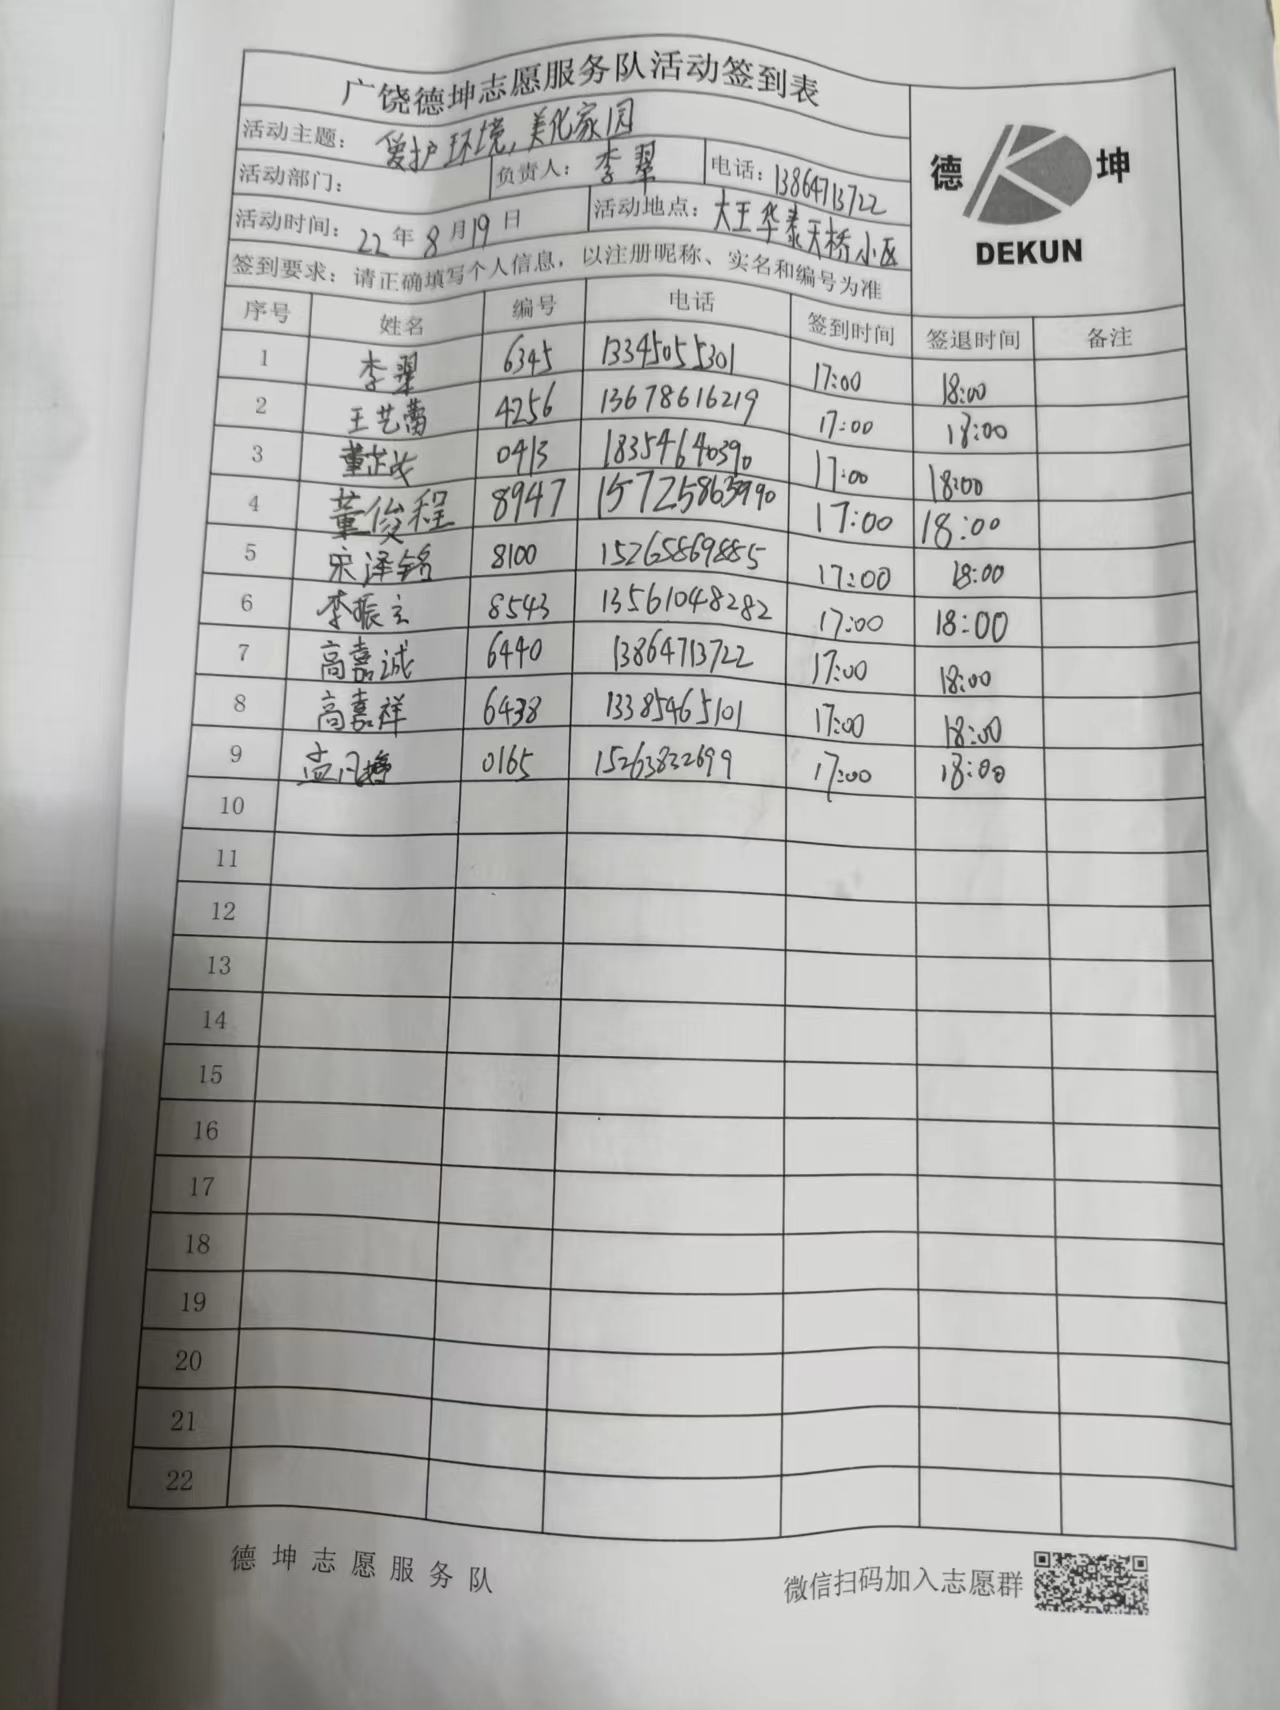 广饶德坤志愿服务队活动签到表
活动主题: 爱护环境,美化家园
活动部门: 负责人: 李翠 电话: 13864713722
活动时间: 22年8月19日 活动地点: 大王华泰天桥小区
签到要求: 请正确填写个人信息, 以注册昵称、实名和编号为准
德 坤
DEKUN
序号 姓名 编号 电话 签到时间 签退时间 备注
1 李翠 6345 13345055301 17:00 18:00
2 王艺蕾 4256 13678616219 17:00 18:00
3 董 0413 18354640390 17:00 18:00
4 董俊程 8947 17:00 18:00
5 宋泽铭 8100 15265869885 17:00 18:00
6 李振立 8543 13561048282 17:00 18:00
7 高嘉诚 6440 13864713722 17:00 18:00
8 高嘉祥 6438 13385465101 17:00 18:00
9 孟凡婷 0165 15263832699 17:00 18:00
10
11
12
13
14
15
16
17
18
19
20
21
22
德坤志愿服务队 微信扫码加入志愿群